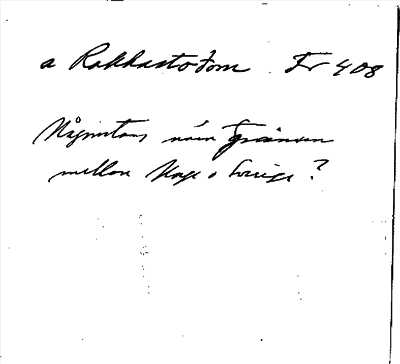 a Rakkasto tom Fr 408
Någonstans nära gränsen
mellan Norge o Sverige?